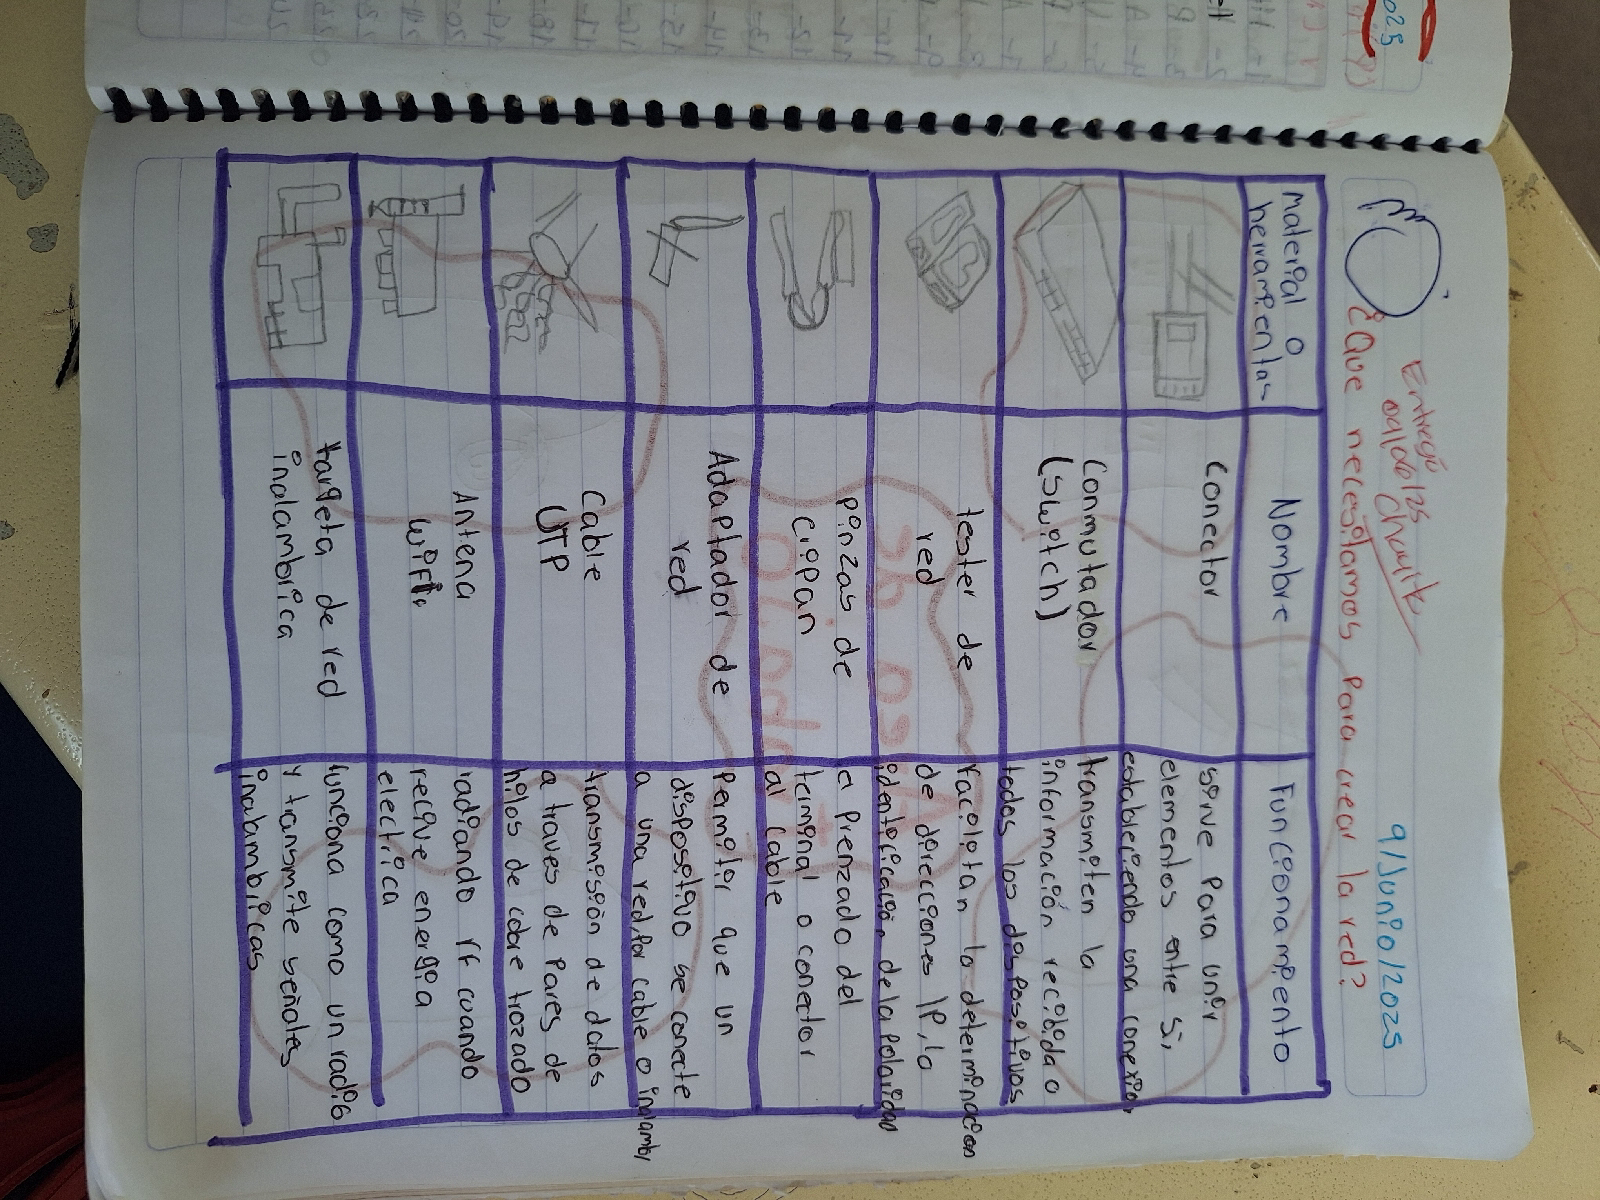 9/Junio/2025
Entregó
09/06/25
¿Que necesitamos para crear la red?
Material o
herramientas
Nombre
Funcionamiento
Conector
sirve para unir
elementos entre si,
estableciendo una conexion
Conmutador
(switch)
transmiten la
información recibida o
todos los dispositivos
tester de
red
facilitan la determinacion
de direcciones IP, la
identificación de la polaridad
pinzas de
cripan
el prenzado del
terminal o conector
al cable
Adaptador de
red
Permitir que un
dispositivo se conecte
a una red por cable o inalambr
Cable
UTP
transmisión de datos
a traves de pares de
hilos de cobre trozado
Antena
wifi
radiando rf cuando
recive energia
electrica
targeta de red
inalambrica
funciona como un radio
y transmite señales
inalambricas